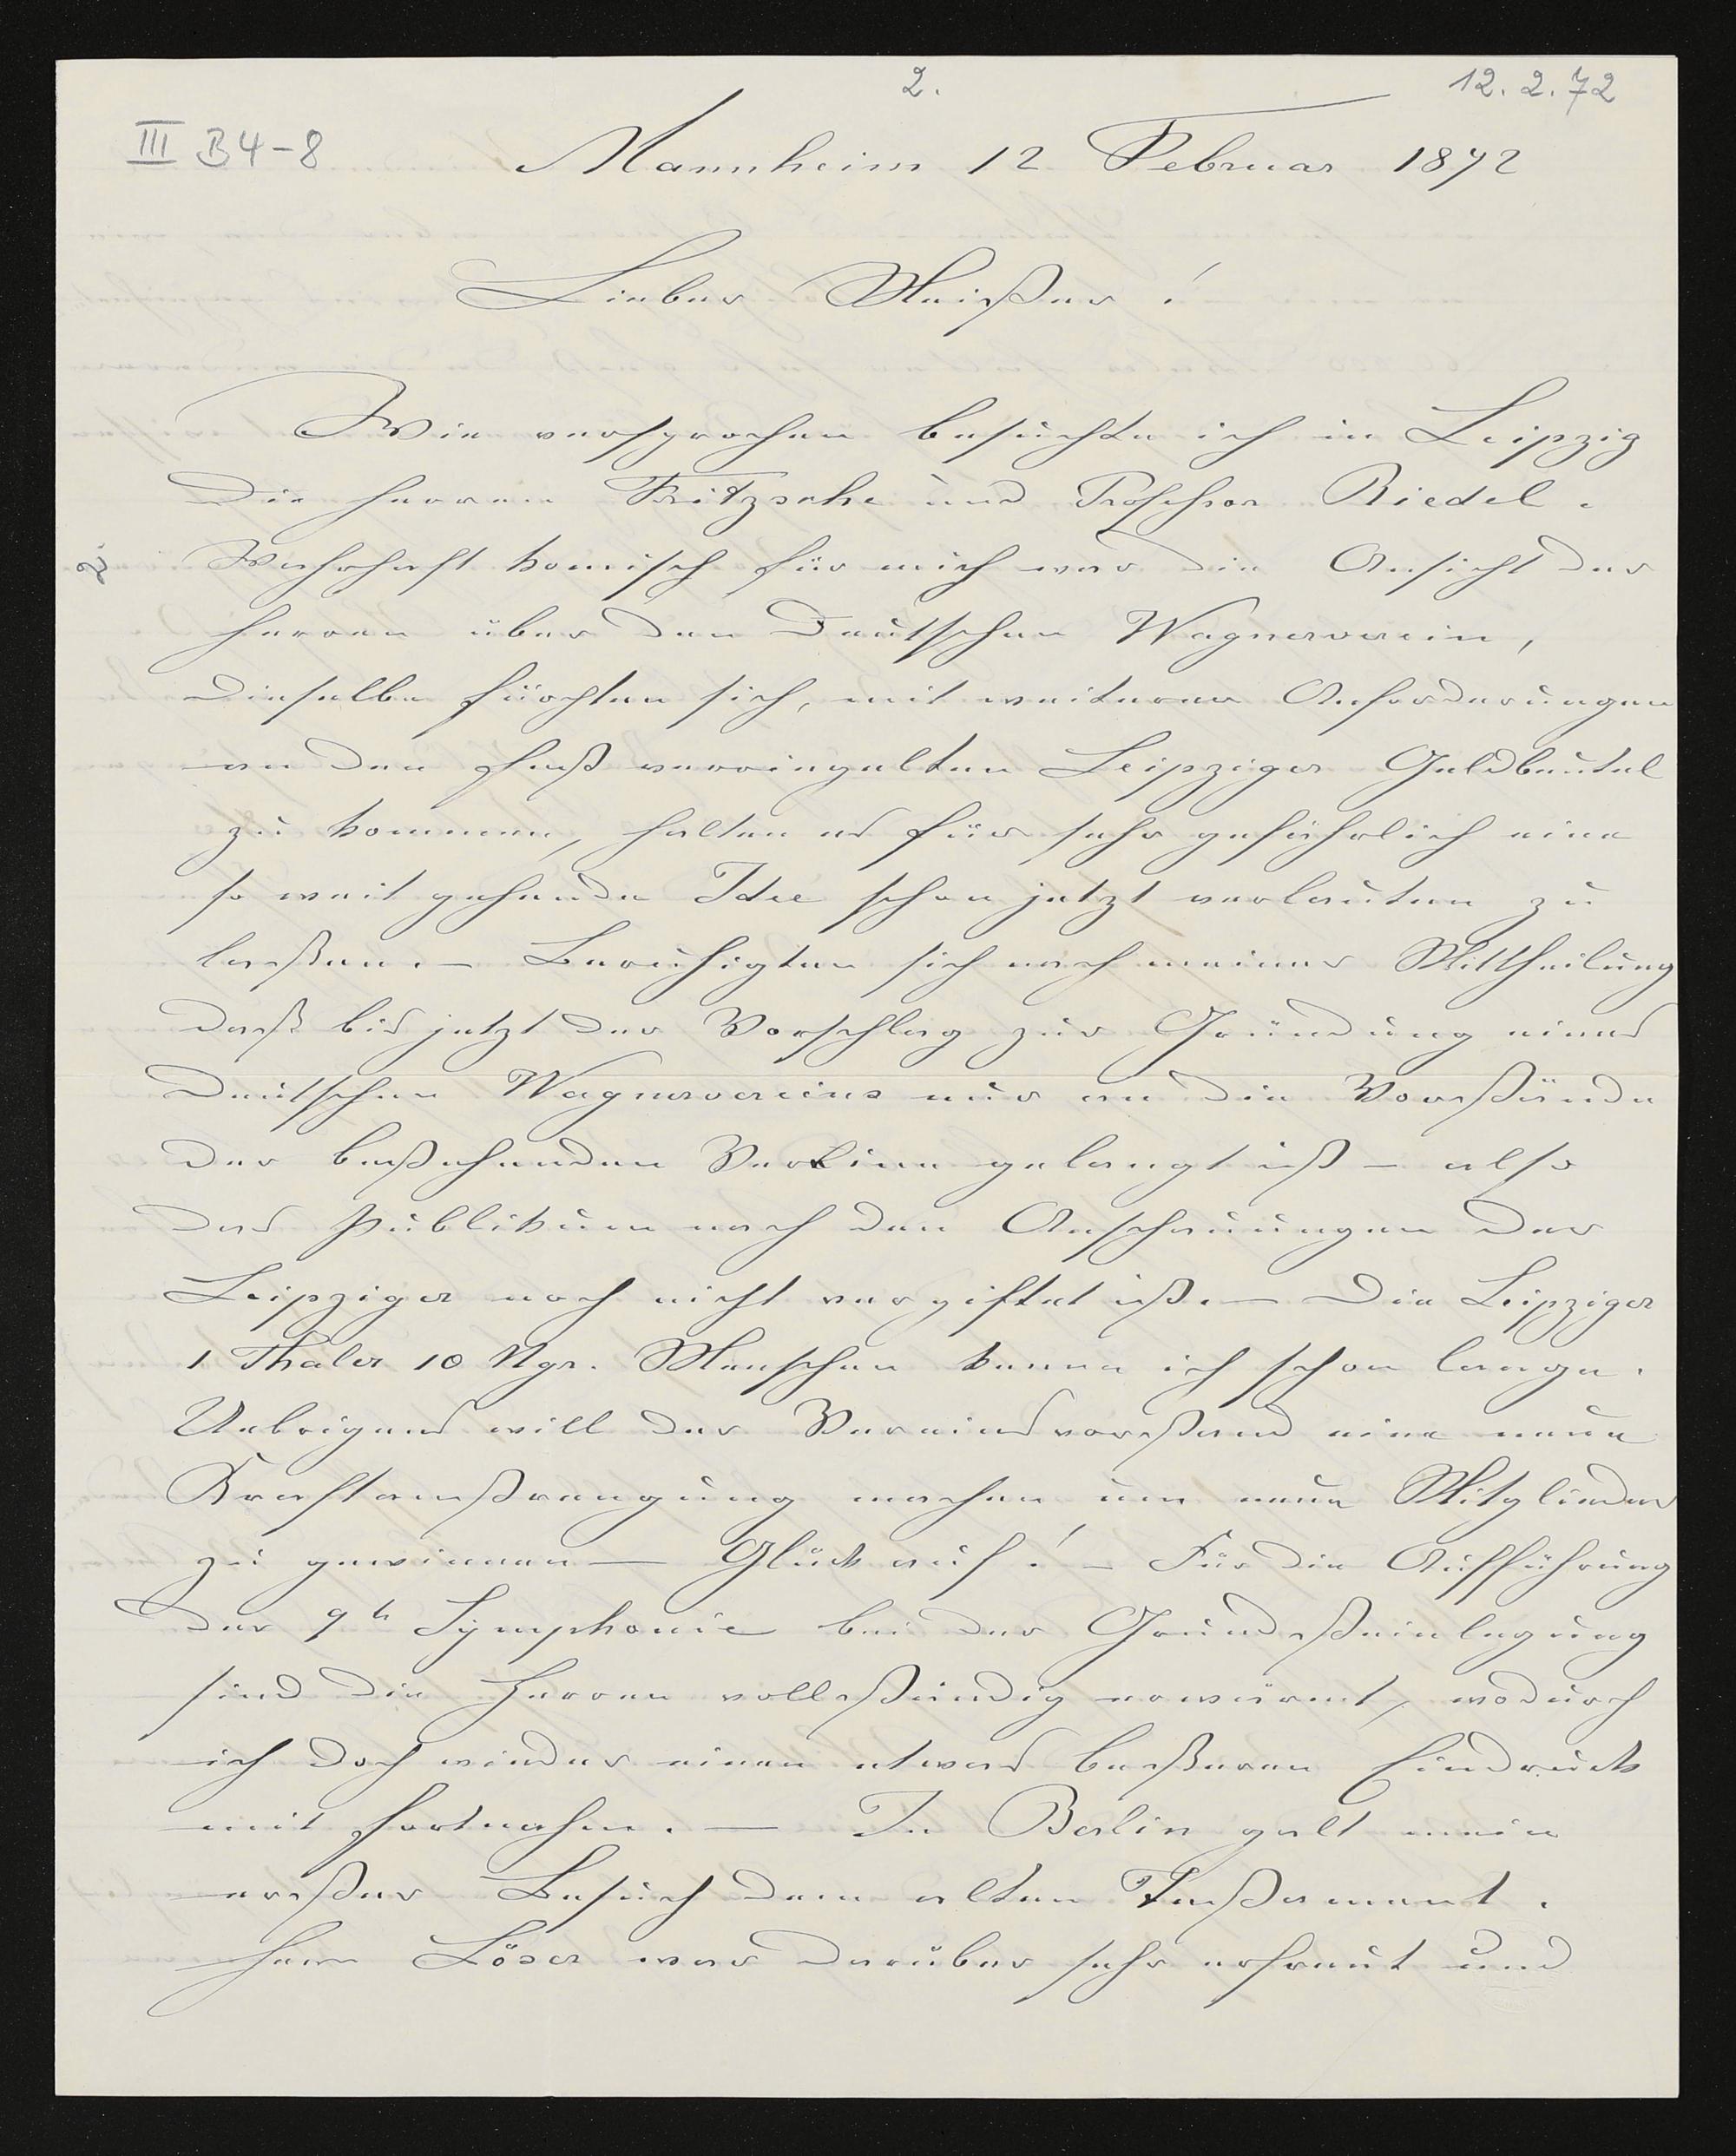 2.
12.2.72
III B4-8
Mannheim 12 Februar 1872
Lieber Meister!
Wie versprochen besuchte ich in Leipzig
die Herren Fritzsche und Professor Riedel.
2.
Wahrhaft komisch für mich war die Ansicht der
Herren über den Deutschen Wagnerverein,
dieselbe fürchten sich, mit weiteren Anforderungen
an den fest verriegelten Leipziger Geldbeutel
zu kommen, halten es für sehr gefährlich eine
so weit gehende Idee schon jetzt verlauten zu
lassen. – Beruhigten sich nach meiner Mittheilung
dass bis jetzt der Vorschlag zur Gründung eines
Deutschen Wagnervereins nur an die Vorstände
der bestehenden Vereine gelangt ist – also
das Publikum nach den Anschauungen der
Leipziger noch nicht vergiftet ist. – Die Leipziger
1 Thaler 10 Ngr. Menschen kenne ich schon lange.
Uebrigens will der Vereinsvorstand eine neue
Kraftanstrengung machen um neue Mitglieder
zu gewinnen – Glück auf! – Für die Aufführung
der 9te Symphonie bei der Grundsteinlegung
sind die Herren vollständig erwärmt, wodurch
ich doch wieder einen etwas besseren Eindruck
mit fortnahm. – In Berlin galt mein
erster Besuch dem alten Testament.
Herr Löser war darüber sehr erfreut und